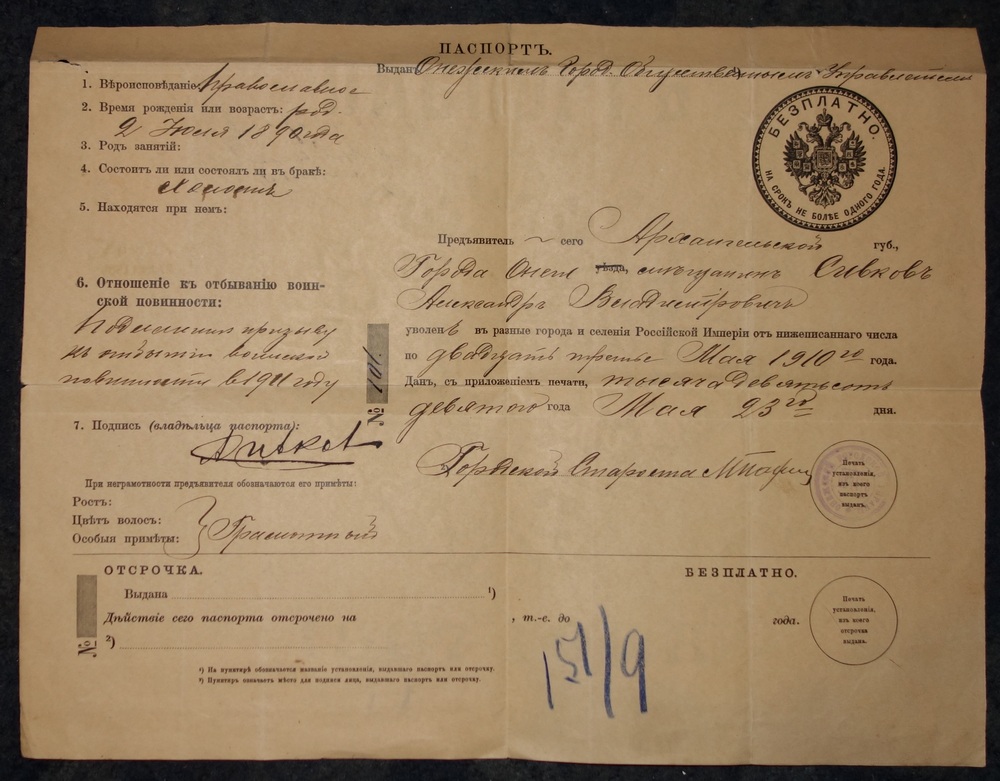 ПАСПОРТЪ.
Выданъ Онежскимъ Город. Общественнымъ Управленіемъ
БЕЗПЛАТНО.
НА СРОКЪ НЕ БОЛѢЕ ОДНОГО ГОДА.
1. Вѣроисповѣданіе: православное
2. Время рожденія или возрастъ: род.
2 Іюля 1890 года
3. Родъ занятій:
4. Состоитъ ли или состоялъ ли въ бракѣ:
Холостъ
5. Находятся при немъ:
6. Отношеніе къ отбыванію воин-
ской повинности:
Подлежитъ призыву
къ отбытію воинской
повинности в 1911 году
7. Подпись (владѣльца паспорта):
АСивков
При неграмотности предъявителя обозначаются его примѣты:
Ростъ:
Цвѣтъ волосъ:
Особыя примѣты:
Грамотный
№ 101.
Предъявитель сего Архангельской губ.,
Города Онеги уѣзда, мѣщанинъ Сивковъ
Александръ Владиміровичъ
уволенъ въ разные города и селенія Россійской Имперіи отъ нижеписаннаго числа
по двадцать третье Мая 1910 го года.
Данъ, съ приложеніемъ печати, тысяча девятьсотъ
девятого года Мая 23 го дня.
Городской Староста
Печать
установленія,
изъ коего
паспортъ
выданъ.
ОТСРОЧКА.
БЕЗПЛАТНО.
Выдана ¹)
Дѣйствіе сего паспорта отсрочено на , т.-е. до года.
№
²)
Печать
установленія,
изъ коего
отсрочка
выдана.
¹) На пунктирѣ обозначается названіе установленія, выдавшаго паспортъ или отсрочку.
²) Пунктиръ означаетъ мѣсто для подписи лица, выдавшаго паспортъ или отсрочку.
151/9